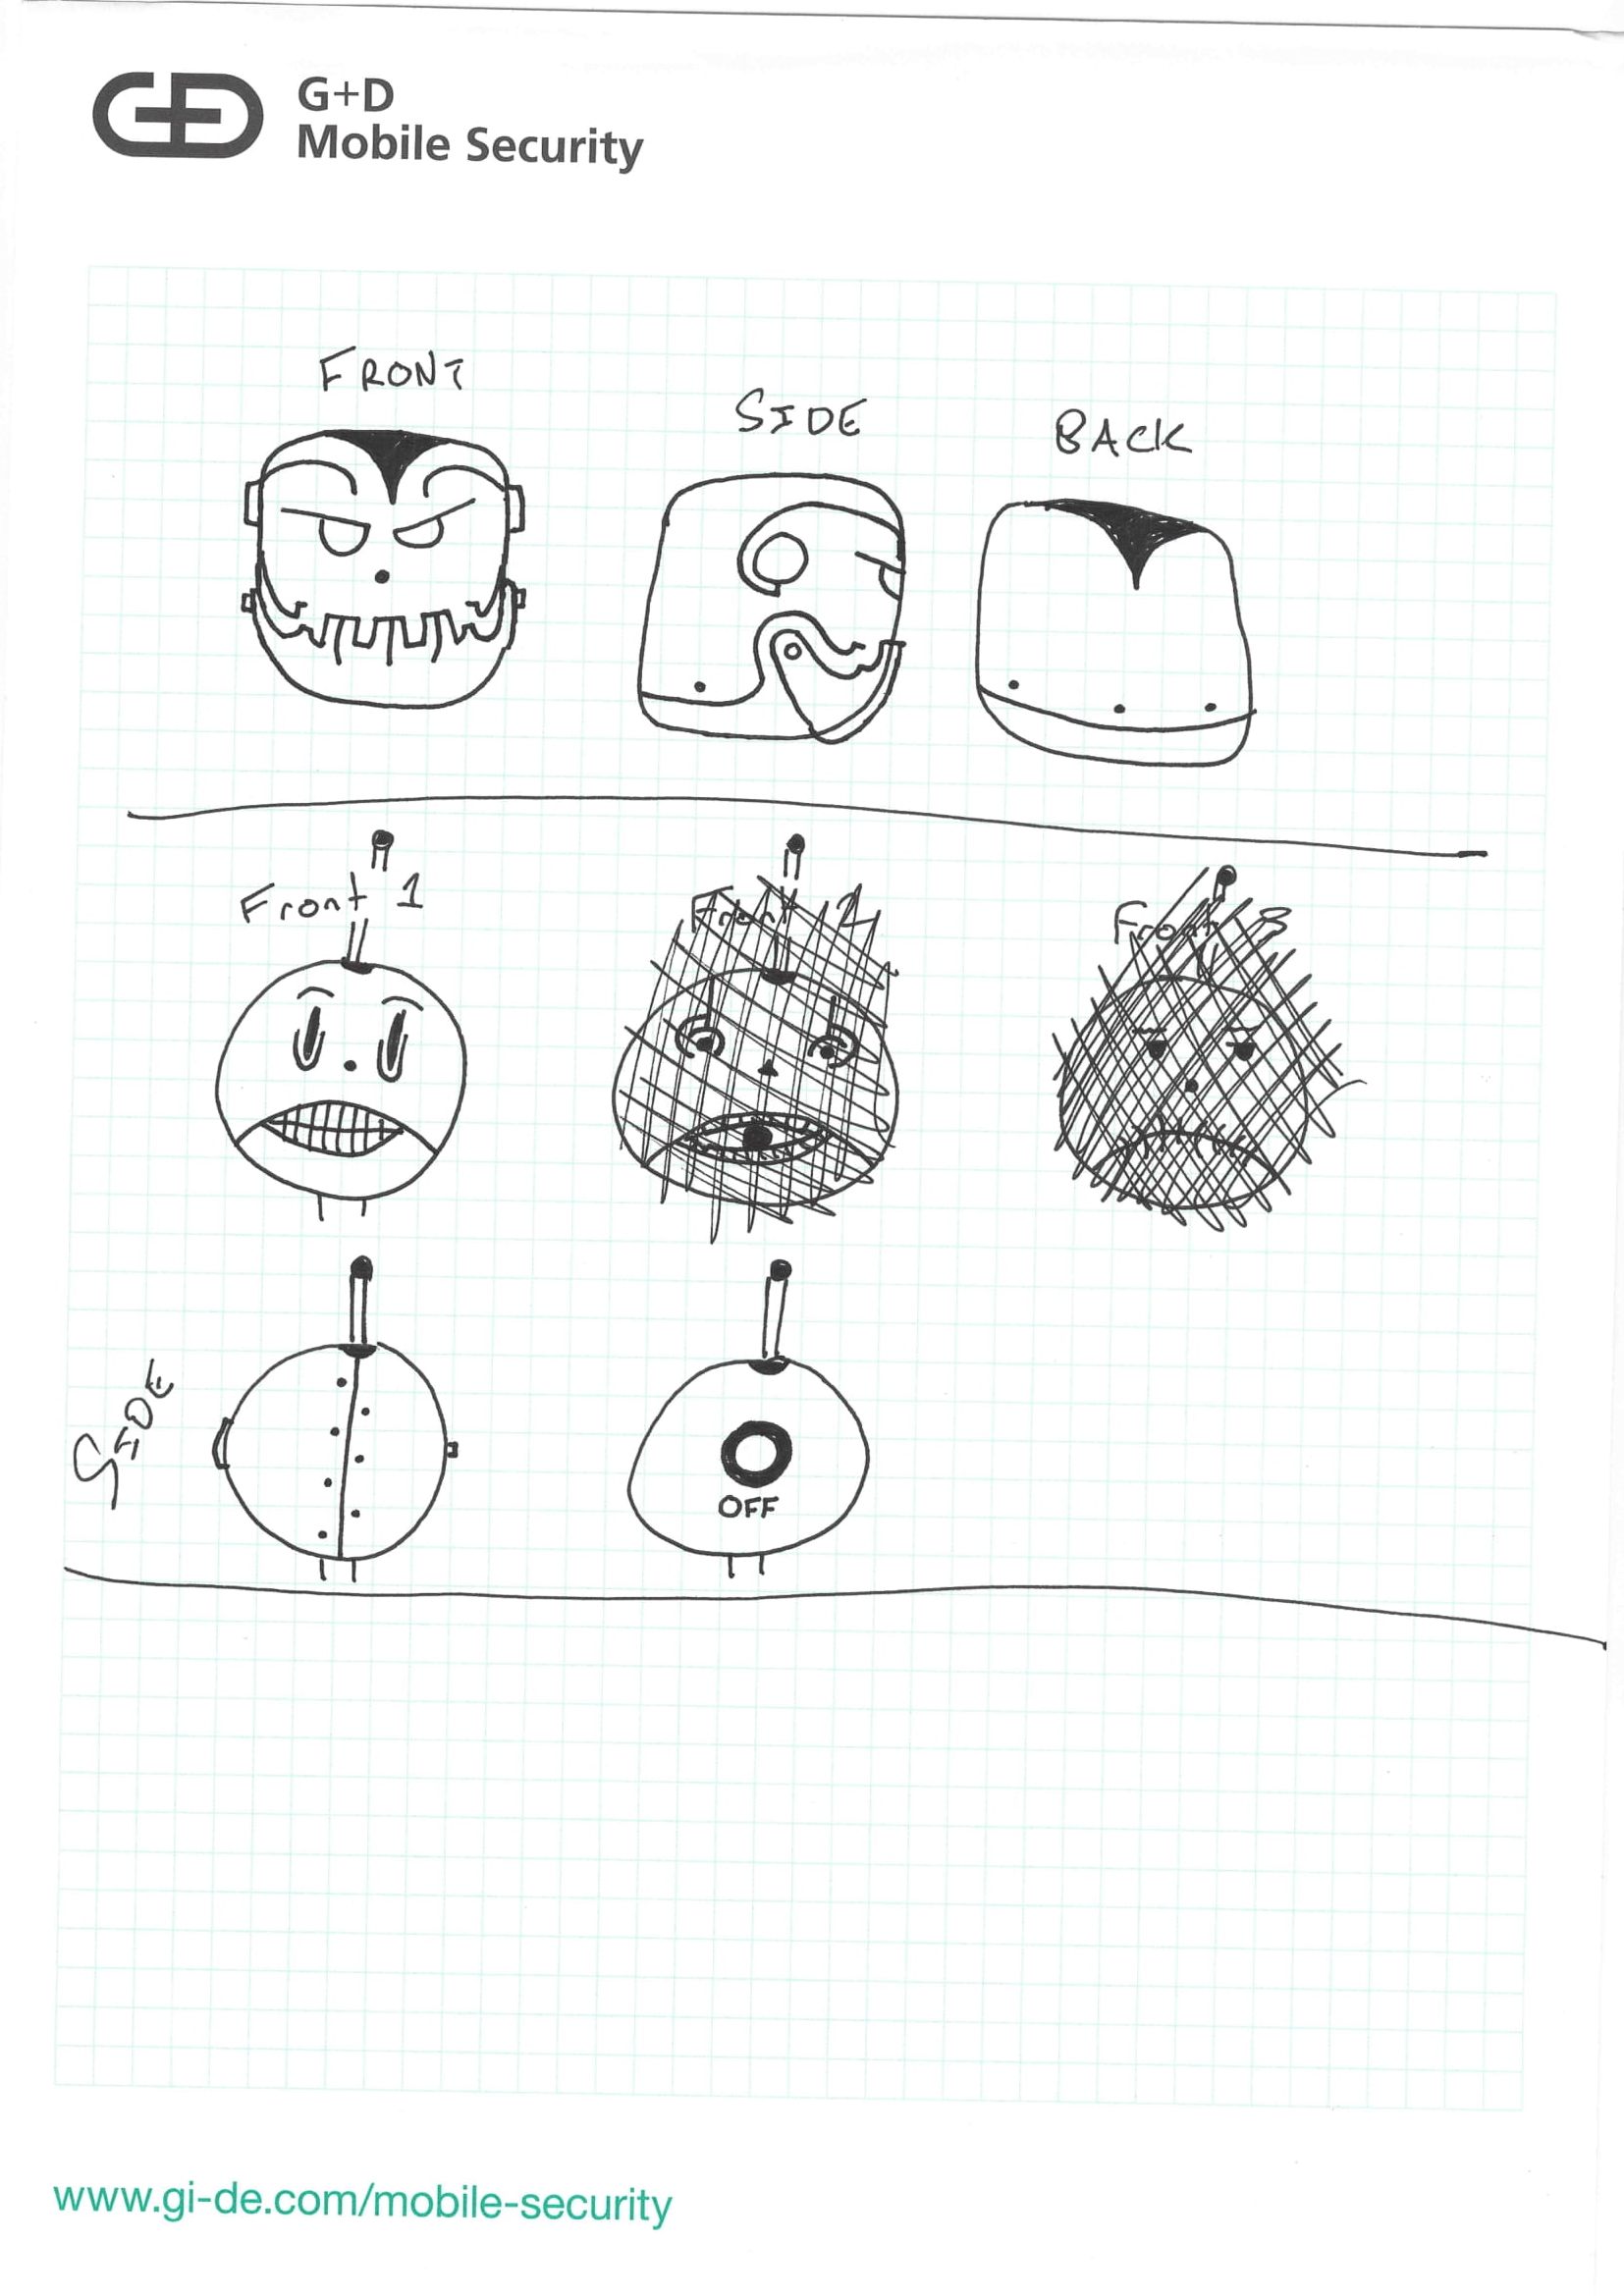 G+D
Mobile Security
FRONT
SIDE
BACK
Front 1
Front 2
Front 3
SIDE
OFF
www.gi-de.com/mobile-security